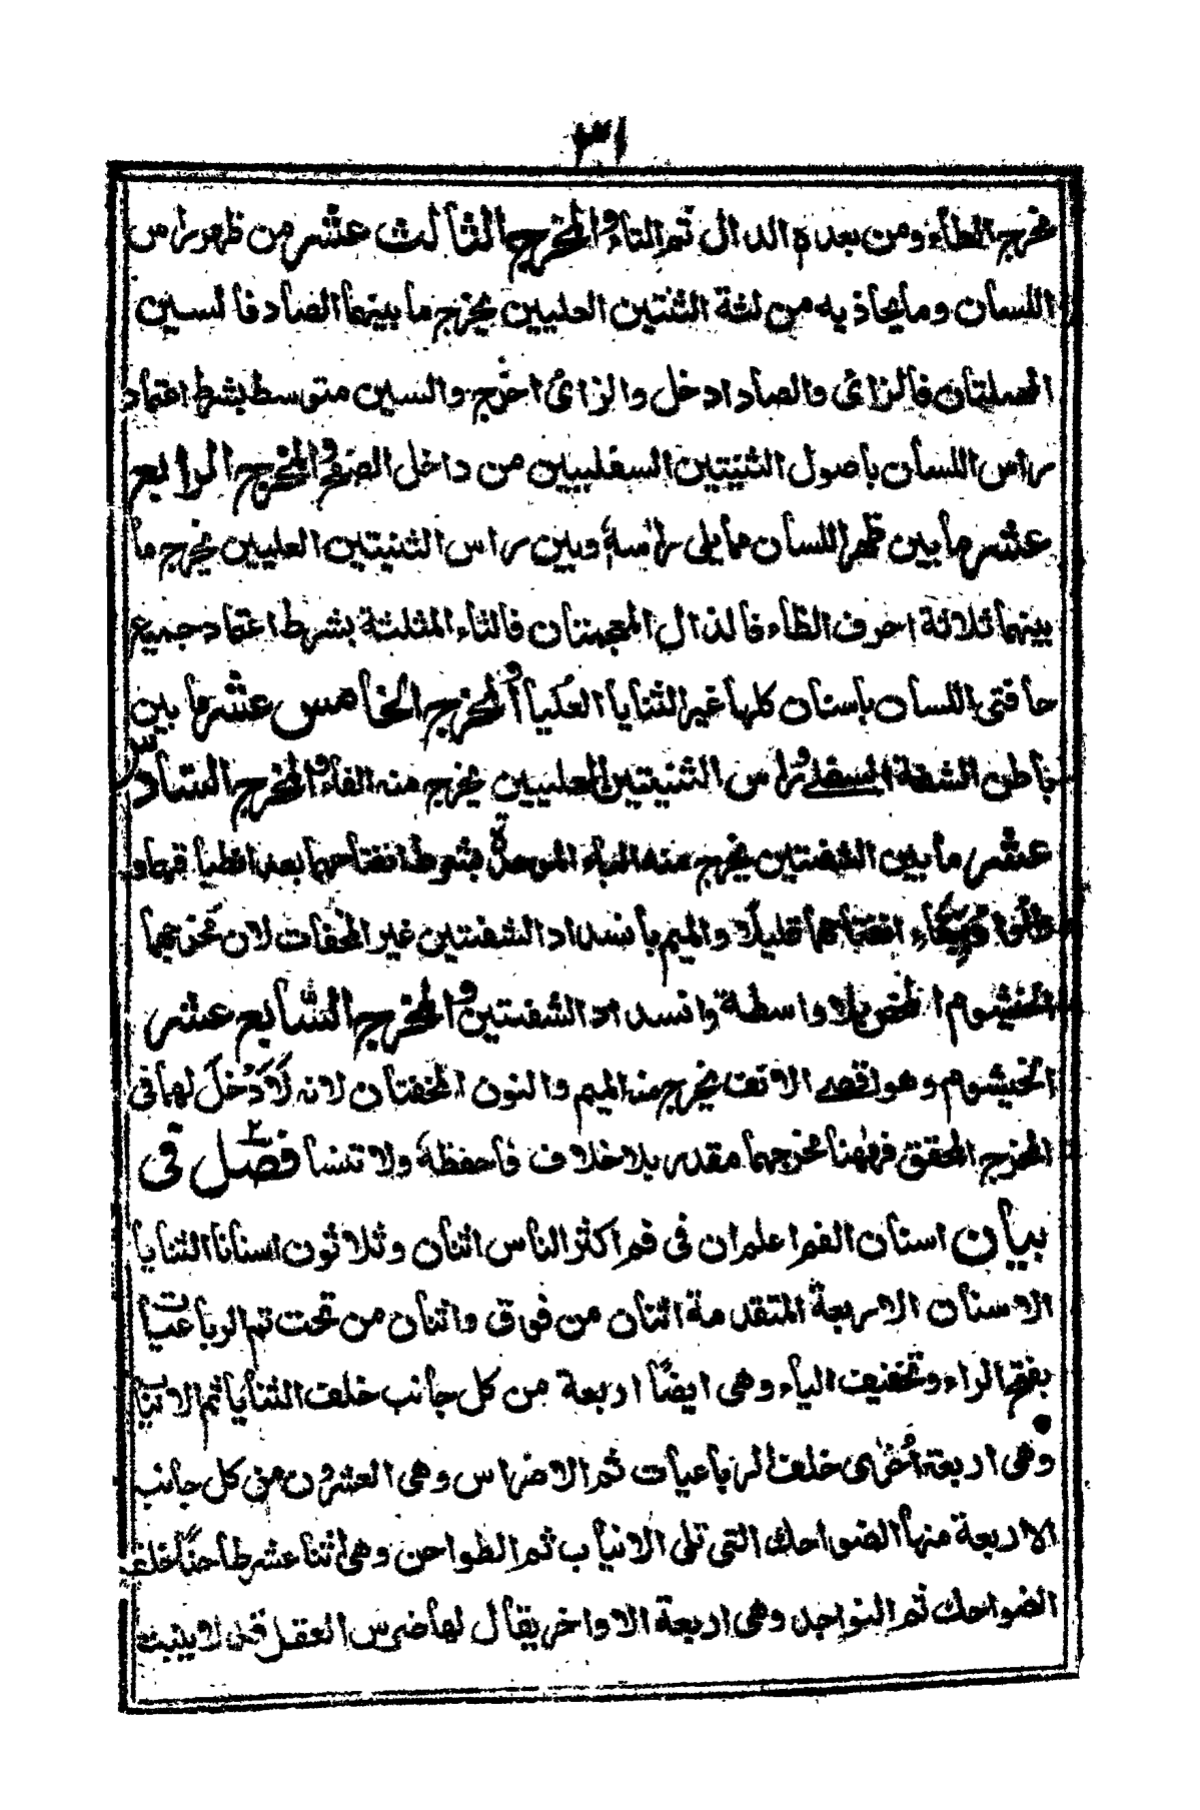 ٣١
مخرج الطاء ومن بعده الدال ثم التاء والمخرج الثالث عشر من ظهر راس
اللسان وما يحاذيه من لثة الثنتين العليين يخرج ما بينهما الصاد فالسين
المهملتان فالزائ والصاد ادخل والزائ احرج والسين متوسط بشرط اعتماد
راس اللسان باصول الثنيتين السفليين من داخل الصفح والمخرج الرابع
عشر ما بين ظهر اللسان مما يلى راسه وبين راس الثنيتين العليين يخرج ما
بينهما ثلاثة احرف الظاء فالذال المعجمتان فالثاء المثلثة بشرط اعتماد جميع
حافتى اللسان باسنان كلها غير الثنايا العليا المخرج الخامس عشر ما بين
باطن الشفة السفلے وراس الثنيتين العليين يخرج منه الفاء والمخرج السادس
عشر ما بين الشفتين يخرج منه الباء الموحدة بشرط انفتاحهما بعد انطباقهما و
انفتاحهما قليلا والميم بانسداد الشفتين غير المخفات لان مخرجهما
الخيشوم بلا واسطة وانسداد الشفتين والمخرج السابع عشر
الخيشوم وهو اقصے الانف يخرج منه الميم والنون المخفتان لانه لا دخل لهما فى
المخرج المحقق فههنا مخرجهما مقدر بلا خلاف فاحفظه ولا تنسا فصل فى
بيان اسنان الفم اعلم ان فى فم اكثر الناس اثنان وثلاثون اسنانا الثنايا
الاسنان الاربعة المتقدمة اثنان من فوق واثنان من تحت ثم الرباعيات
بفتح الراء وتخفيف الياء وهى ايضا اربعة من كل جانب خلف الثنايا ثم الانياب
وهى اربعة اخرى خلف الرباعيات ثم الاضراس وهى العشرون من كل جانب
الاربعة منها الضواحك التى تلى الانياب ثم الطواحن وهى اثنا عشر طاحنا خلف
الضواحك ثم النواجد وهى اربعة الاواخر يقال لها ضرس العقل قد لا ينبت